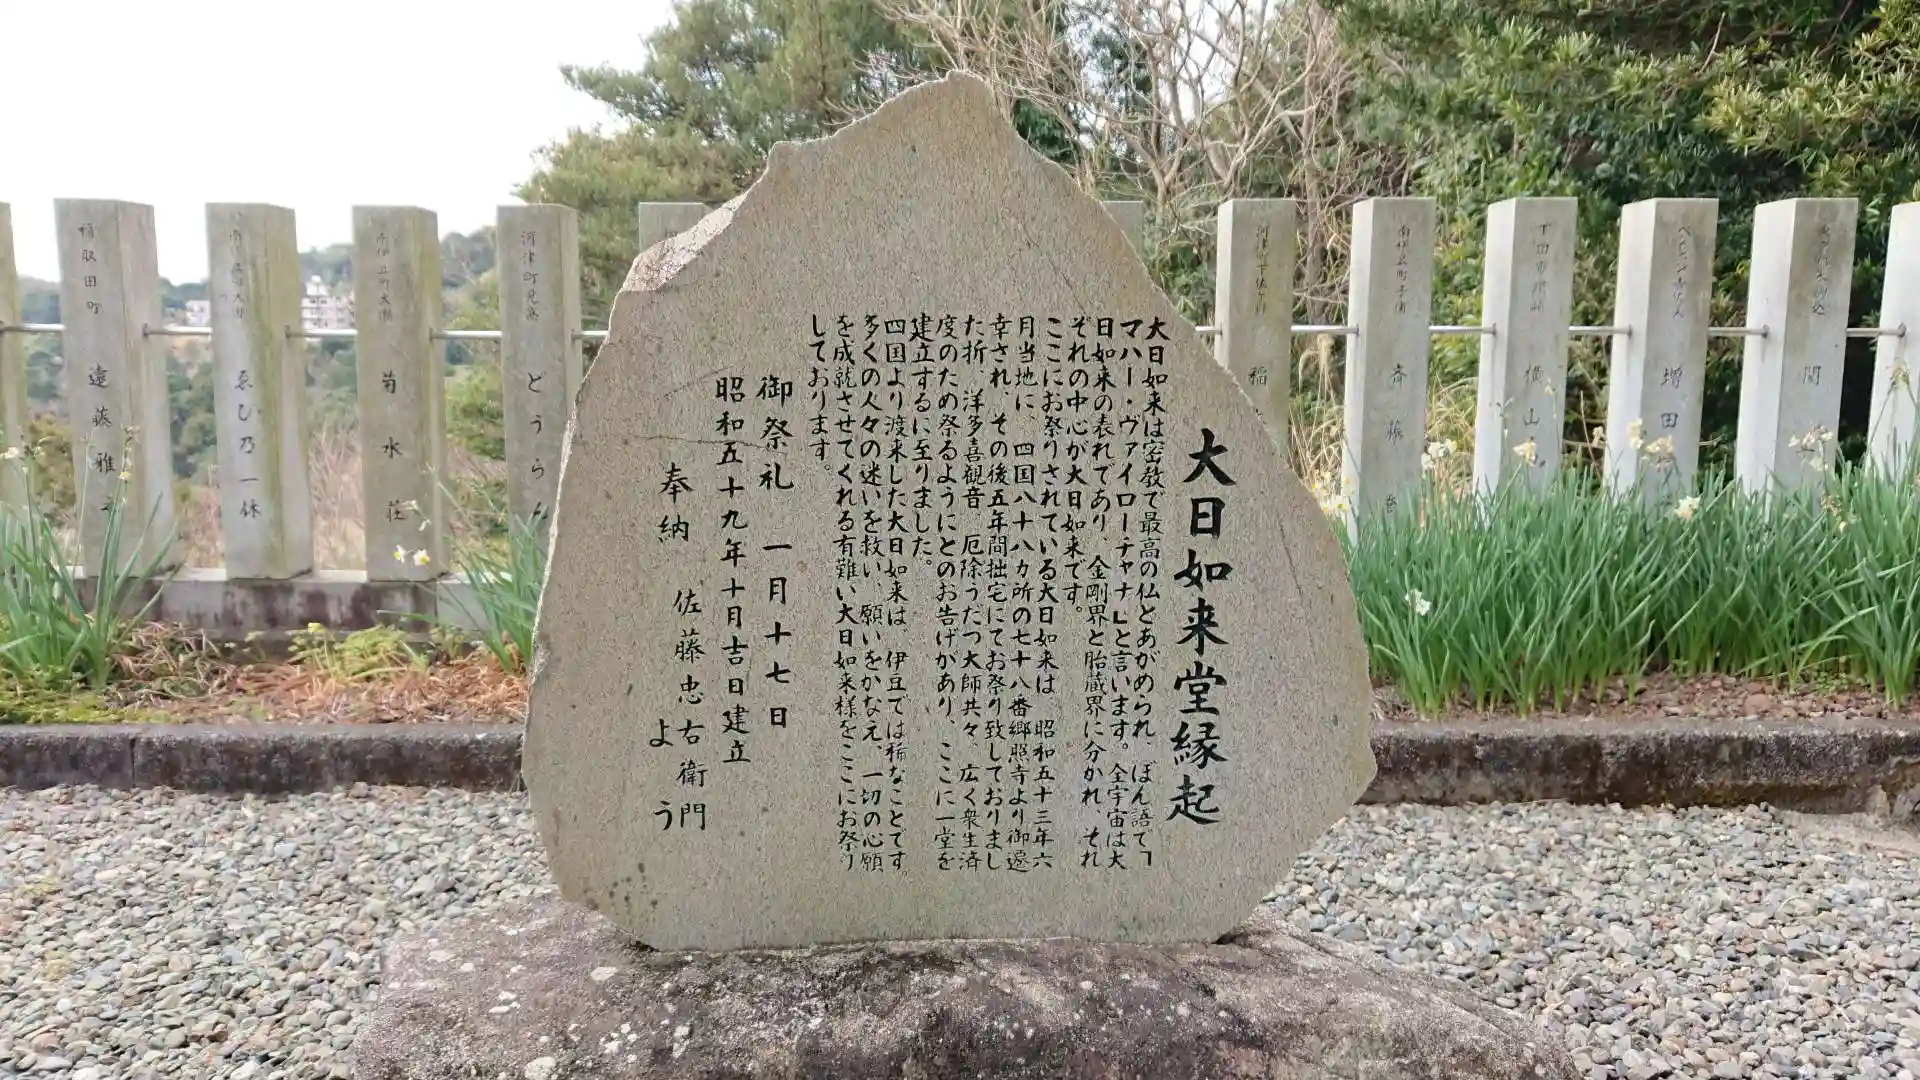 大日如来堂縁起
大日如来は密教で最高の仏とあがめられ、ぼん語で「
マハー・ヴァイローチャナ」と言います。全宇宙は大
日如来の表れであり、金剛界と胎蔵界に分かれ、それ
ぞれの中心が大日如来です。
ここにお祭りされている大日如来は、昭和五十三年六
月当地に、四国八十八カ所の七十八番郷照寺より御遷
幸され、その後五年間拙宅にてお祭り致しておりまし
た折、洋多喜観音、厄除うだつ大師共々、広く衆生済
度のため祭るようにとのお告げがあり、ここに一堂を
建立するに至りました。
四国より渡来した大日如来は、伊豆では稀なことです。
多くの人々の迷いを救い、願いをかなえ、一切の心願
を成就させてくれる有難い大日如来様をここにお祭り
しております。
御祭礼 一月十七日
昭和五十九年十月吉日建立
奉納 佐藤忠右衛門
よう
稲取田町 遠藤雅
ゑび乃一休
菊水荘
河津町見高 どうらん
稲
斉藤
下田市須崎 横山
増田
関